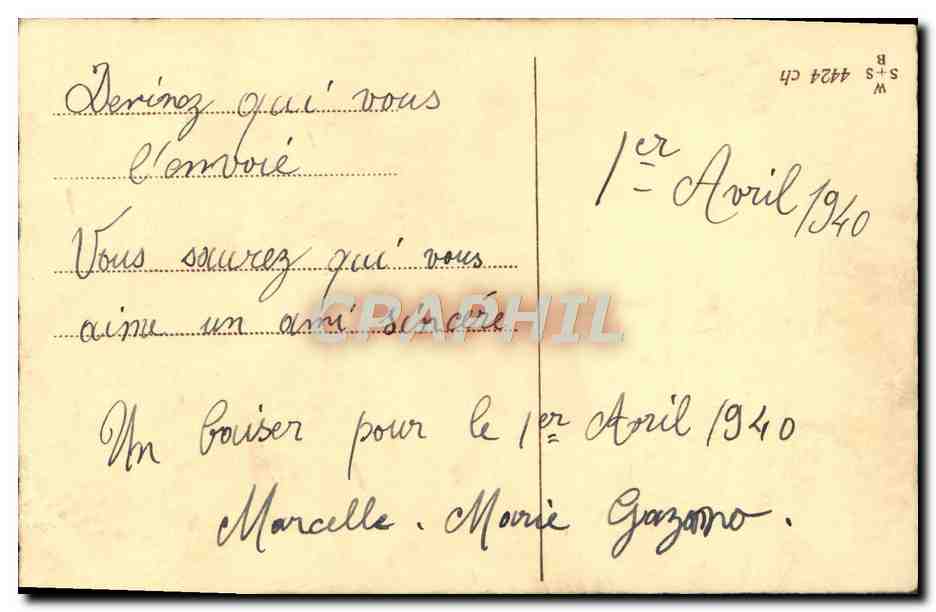 Devinez qui vous
l'envoié
Vous saurez qui vous
aime un ami sincéré.
1er Avril 1940
Un baiser pour le 1er Avril 1940
Marcelle. Marie
CPAPHIL
W
S+S 4424 ch
B